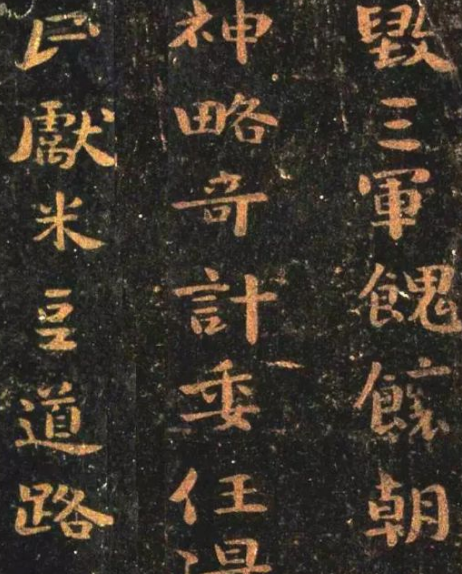 毀三軍餽饟朝
神略奇計委任
民獻米豆道路